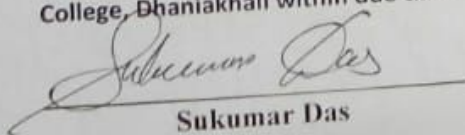 College, Dhaniakhali within
Sukumar Das
Sukumar Das